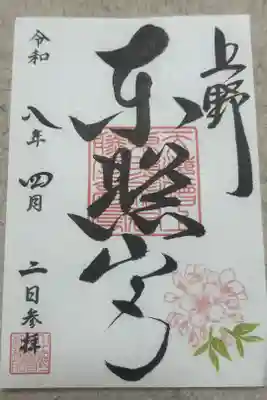 上野
東照宮
令和
八年
四月
二日参拝